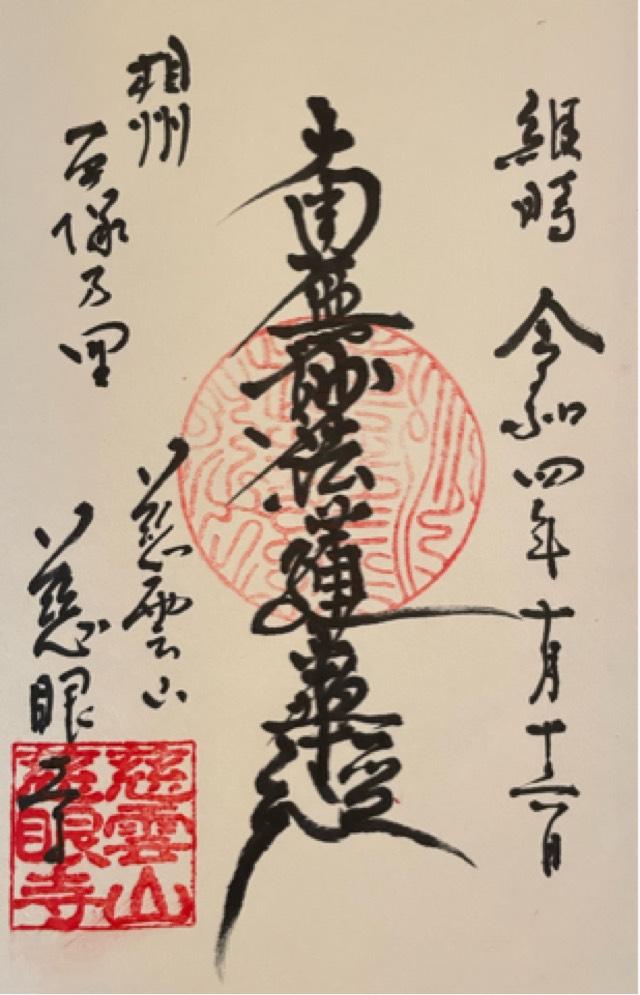 維時 令和四年十月十六日
南無妙法蓮華経
相州
乃里
慈雲山
慈眼寺
慈雲山
慈眼寺